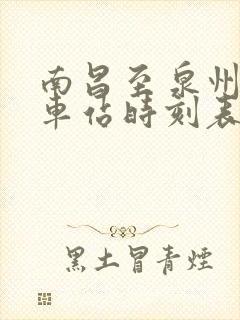 南昌至泉州
車站時刻表
黑土冒青煙